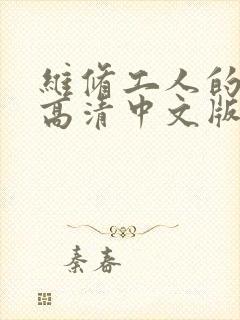 维修工人的
高清中文版
秦春